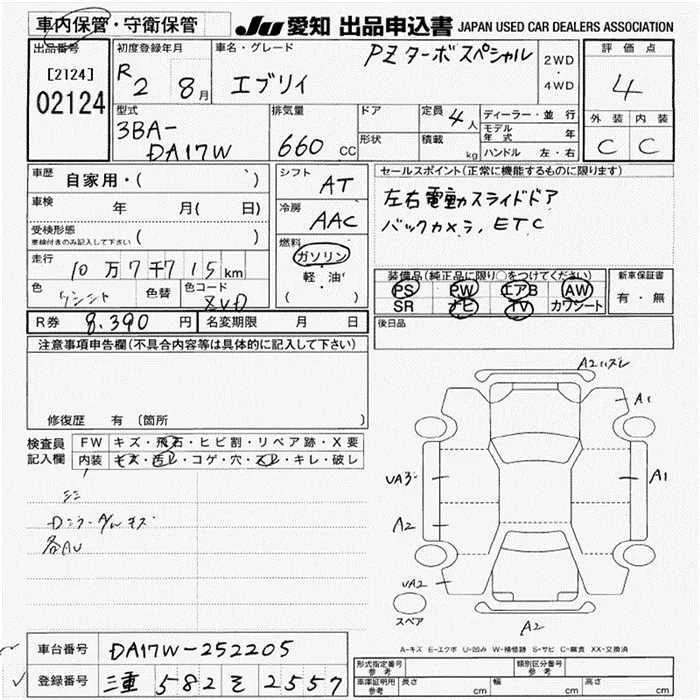 車内保管・守衛保管
JU 愛知 出品申込書 JAPAN USED CAR DEALERS ASSOCIATION
出品番号
[2124]
02124
初度登録年月
R 2 8月
車名・グレード
PZターボスペシャル
エブリイ
2WD
・
4WD
評価点
4
外装 内装
C C
型式
3BA-
DA17W
排気量
660 CC
ドア
形状
定員 4人
積載 kg
ディーラー・並行
モデル年式 年
ハンドル 左・右
車歴 自家用・( )
車検 年 月( 日)
受検形態
車検付きのみ記入して下さい ( )
走行 10万7千715km
色 色替 色コード
ZVD
R券 8,390円 名変期限 月 日
シフト AT
冷房 AAC
燃料
ガソリン
軽・油
( )
セールスポイント(正常に機能するものに限ります)
左右電動スライドドア
バックカメラ, ETC
装備品(純正品に限り○をつけてください)
PS PW エアB AW
SR ナビ TV カワシート
新車保証書
有・無
後日品
注意事項申告欄(不具合内容等は具体的に記入して下さい)
修復歴 有(箇所 )
検査員
記入欄
FW キズ・飛石・ヒビ割・リペア跡・X要
内装 キズ・汚レ・コゲ・穴・スレ・キレ・破レ
Dミラー A/W キズ
各AU
A2ハズレ
A1
UA3
A1
A2
UA2
A2
スペア
A-キズ E-エクボ U-凹み W-補修跡 S-サビ C-腐食 XX-交換済
車台番号 DA17W-252205
登録番号 三重 582 そ 2557
形式指定番号
参考
類別区分番号
参考
車庫証明用
参考
長さ cm 幅 cm 高さ cm